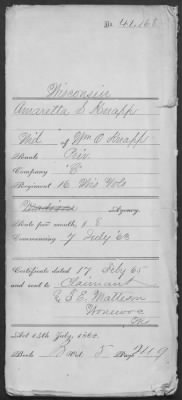 No. 41,168
Wisconsin
Amaretta S Knapp
Wid. of Wm O Knapp
Rank Priv.
Company "C"
Regiment 16 Wis Vols
Madison Agency.
Rate per month, $ 8
Commencing 7 July '63
Certificate dated 17 Feby 65
and sent to Claimant
Wonewoc
Wis
Act 14th July, 1862.
Book B Vol. 5 Page 249